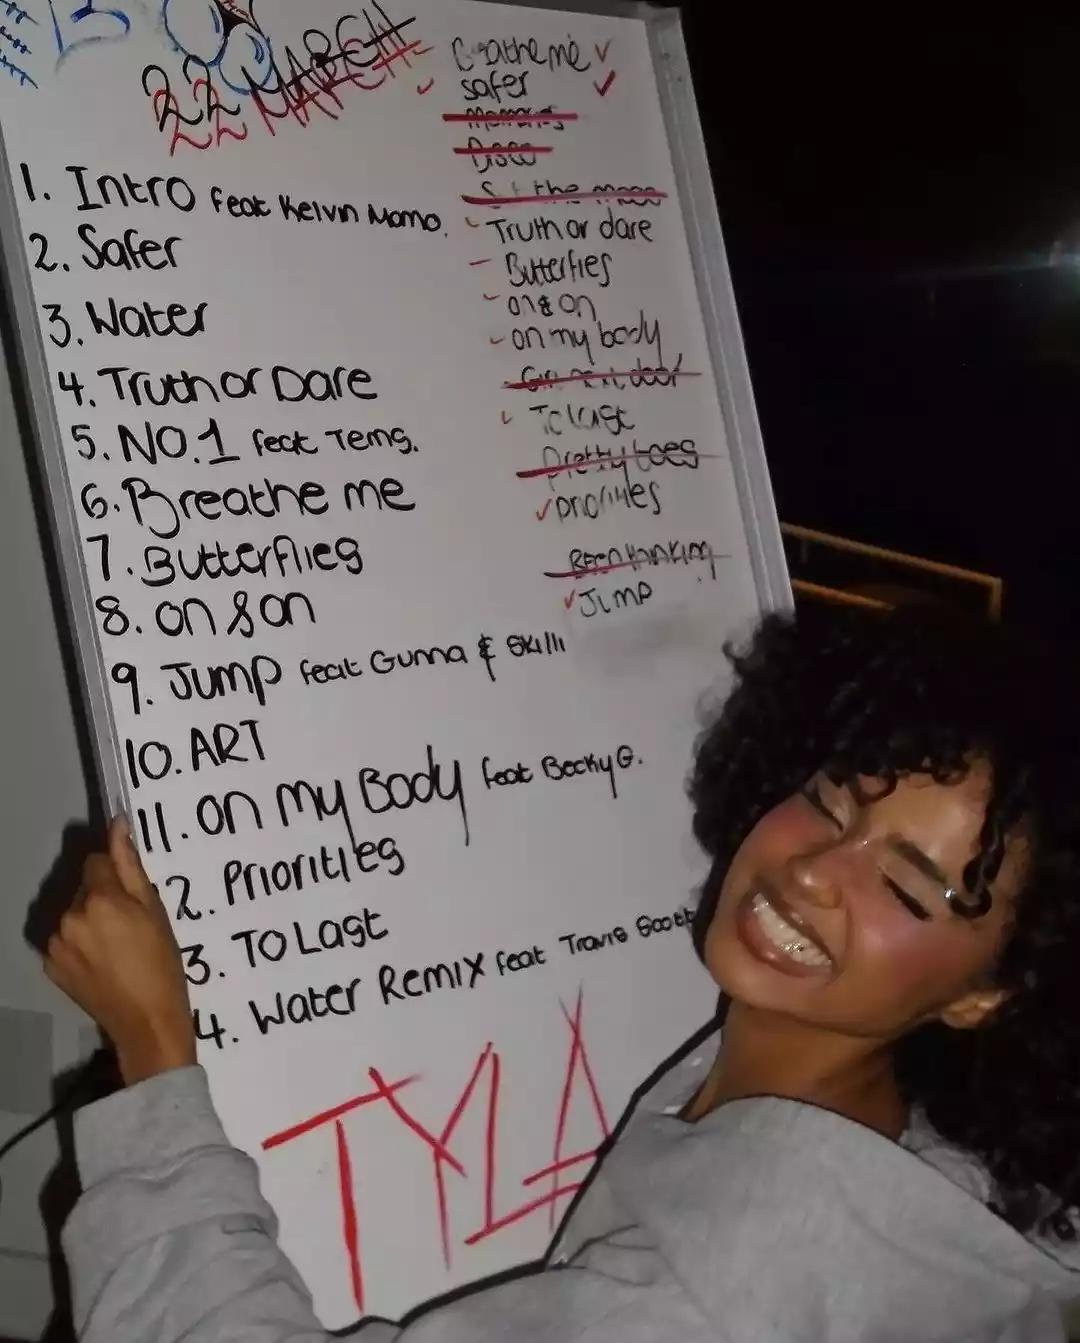 22 MARCH
1. Intro feat Kelvin Momo.
2. Safer
3. Water
4. Truth or Dare
5. NO.1 feat Tems.
6. Breathe me
7. Butterflies
8. on & on
9. Jump feat Gunna & Skilli
10. ART
11. on my Body feat Becky G.
2. Priorities
3. TO Last
4. Water Remix feat Travis Scott
TYLA
Breathe me
safer
Disco
the moon
Truth or dare
Butterflies
on & on
on my body
door
To last
Pretty toes
priorities
Been thinking
Jump